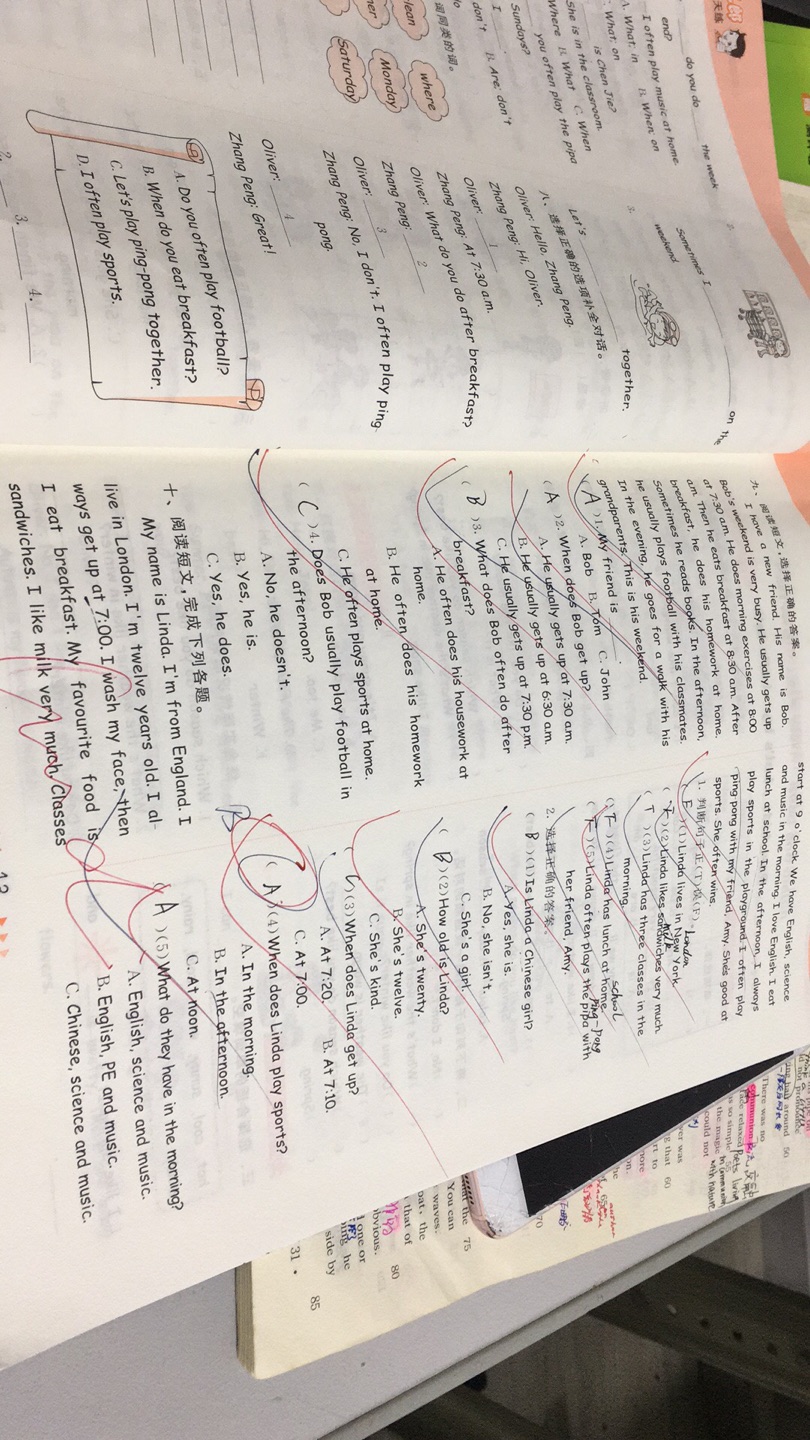 end?
do you do
the week
I often play music at home.
A. What; in
B. When; on
What; on
is Chen Jie?
She is in the classroom.
Where B. What C. When
you often play the pipa
Sundays?
I
don't
B. Are; don't
词同类的词。
where
Monday
Saturday
Sometimes I
on the
weekend.
3.
Let's
together.
八、选择正确的选项补全对话。
Oliver: Hello, Zhang Peng.
Zhang Peng: Hi, Oliver.
Oliver: 1
Zhang Peng: At 7:30 a.m.
Oliver: What do you do after breakfast?
Zhang Peng: 2
Oliver: 3
Zhang Peng: No, I don't. I often play ping-
pong.
Oliver: 4
Zhang Peng: Great!
A. Do you often play football?
B. When do you eat breakfast?
C. Let's play ping-pong together.
D. I often play sports.
2. 3. 4.
九、阅读短文,选择正确的答案。
I have a new friend. His name is Bob.
Bob's weekend is very busy. He usually gets up
at 7:30 a.m. He does morning exercises at 8:00
a.m. Then he eats breakfast at 8:30 a.m. After
breakfast, he does his homework at home.
Sometimes he reads books. In the afternoon,
he usually plays football with his classmates.
In the evening, he goes for a walk with his
grandparents. This is his weekend.
( A )1. My friend is
A. Bob B. Tom C. John
( A )2. When does Bob get up?
A. He usually gets up at 7:30 a.m.
B. He usually gets up at 6:30 a.m.
C. He usually gets up at 7:30 p.m.
( B )3. What does Bob often do after
breakfast?
A. He often does his housework at
home.
B. He often does his homework
at home.
C. He often plays sports at home.
( C )4. Does Bob usually play football in
the afternoon?
A. No, he doesn't.
B. Yes, he is.
C. Yes, he does.
十、阅读短文,完成下列各题。
My name is Linda. I'm from England. I
live in London. I'm twelve years old. I al-
ways get up at 7:00. I wash my face, then
I eat breakfast. My favourite food is
sandwiches. I like milk very much. Classes
start at 9 o'clock. We have English, science
and music in the morning. I love English. I eat
lunch at school. In the afternoon, I always
play sports in the playground. I often play
ping-pong with my friend, Amy. She's good at
sports. She often wins.
1. 判断句子正(T)误(F)。
( F )(1) Linda lives in New York.
London
( F )(2) Linda likes sandwiches very much.
milk
( T )(3) Linda has three classes in the
morning.
( F )(4) Linda has lunch at home.
school
( F )(5) Linda often plays the pipa with
ping-pong
her friend, Amy.
2. 选择正确的答案。
( B )(1) Is Linda a Chinese girl?
A. Yes, she is.
B. No, she isn't.
C. She's a girl.
( B )(2) How old is Linda?
A. She's twenty.
B. She's twelve.
C. She's kind.
( C )(3) When does Linda get up?
A. At 7:20. B. At 7:10.
C. At 7:00.
B
( A )(4) When does Linda play sports?
A. In the morning.
B. In the afternoon.
C. At noon.
( A )(5) What do they have in the morning?
A. English, science and music.
B. English, PE and music.
C. Chinese, science and music.
There was no
could not
60
70
75
You can
waves.
that of
80
obvious.
one or
side by
31
85